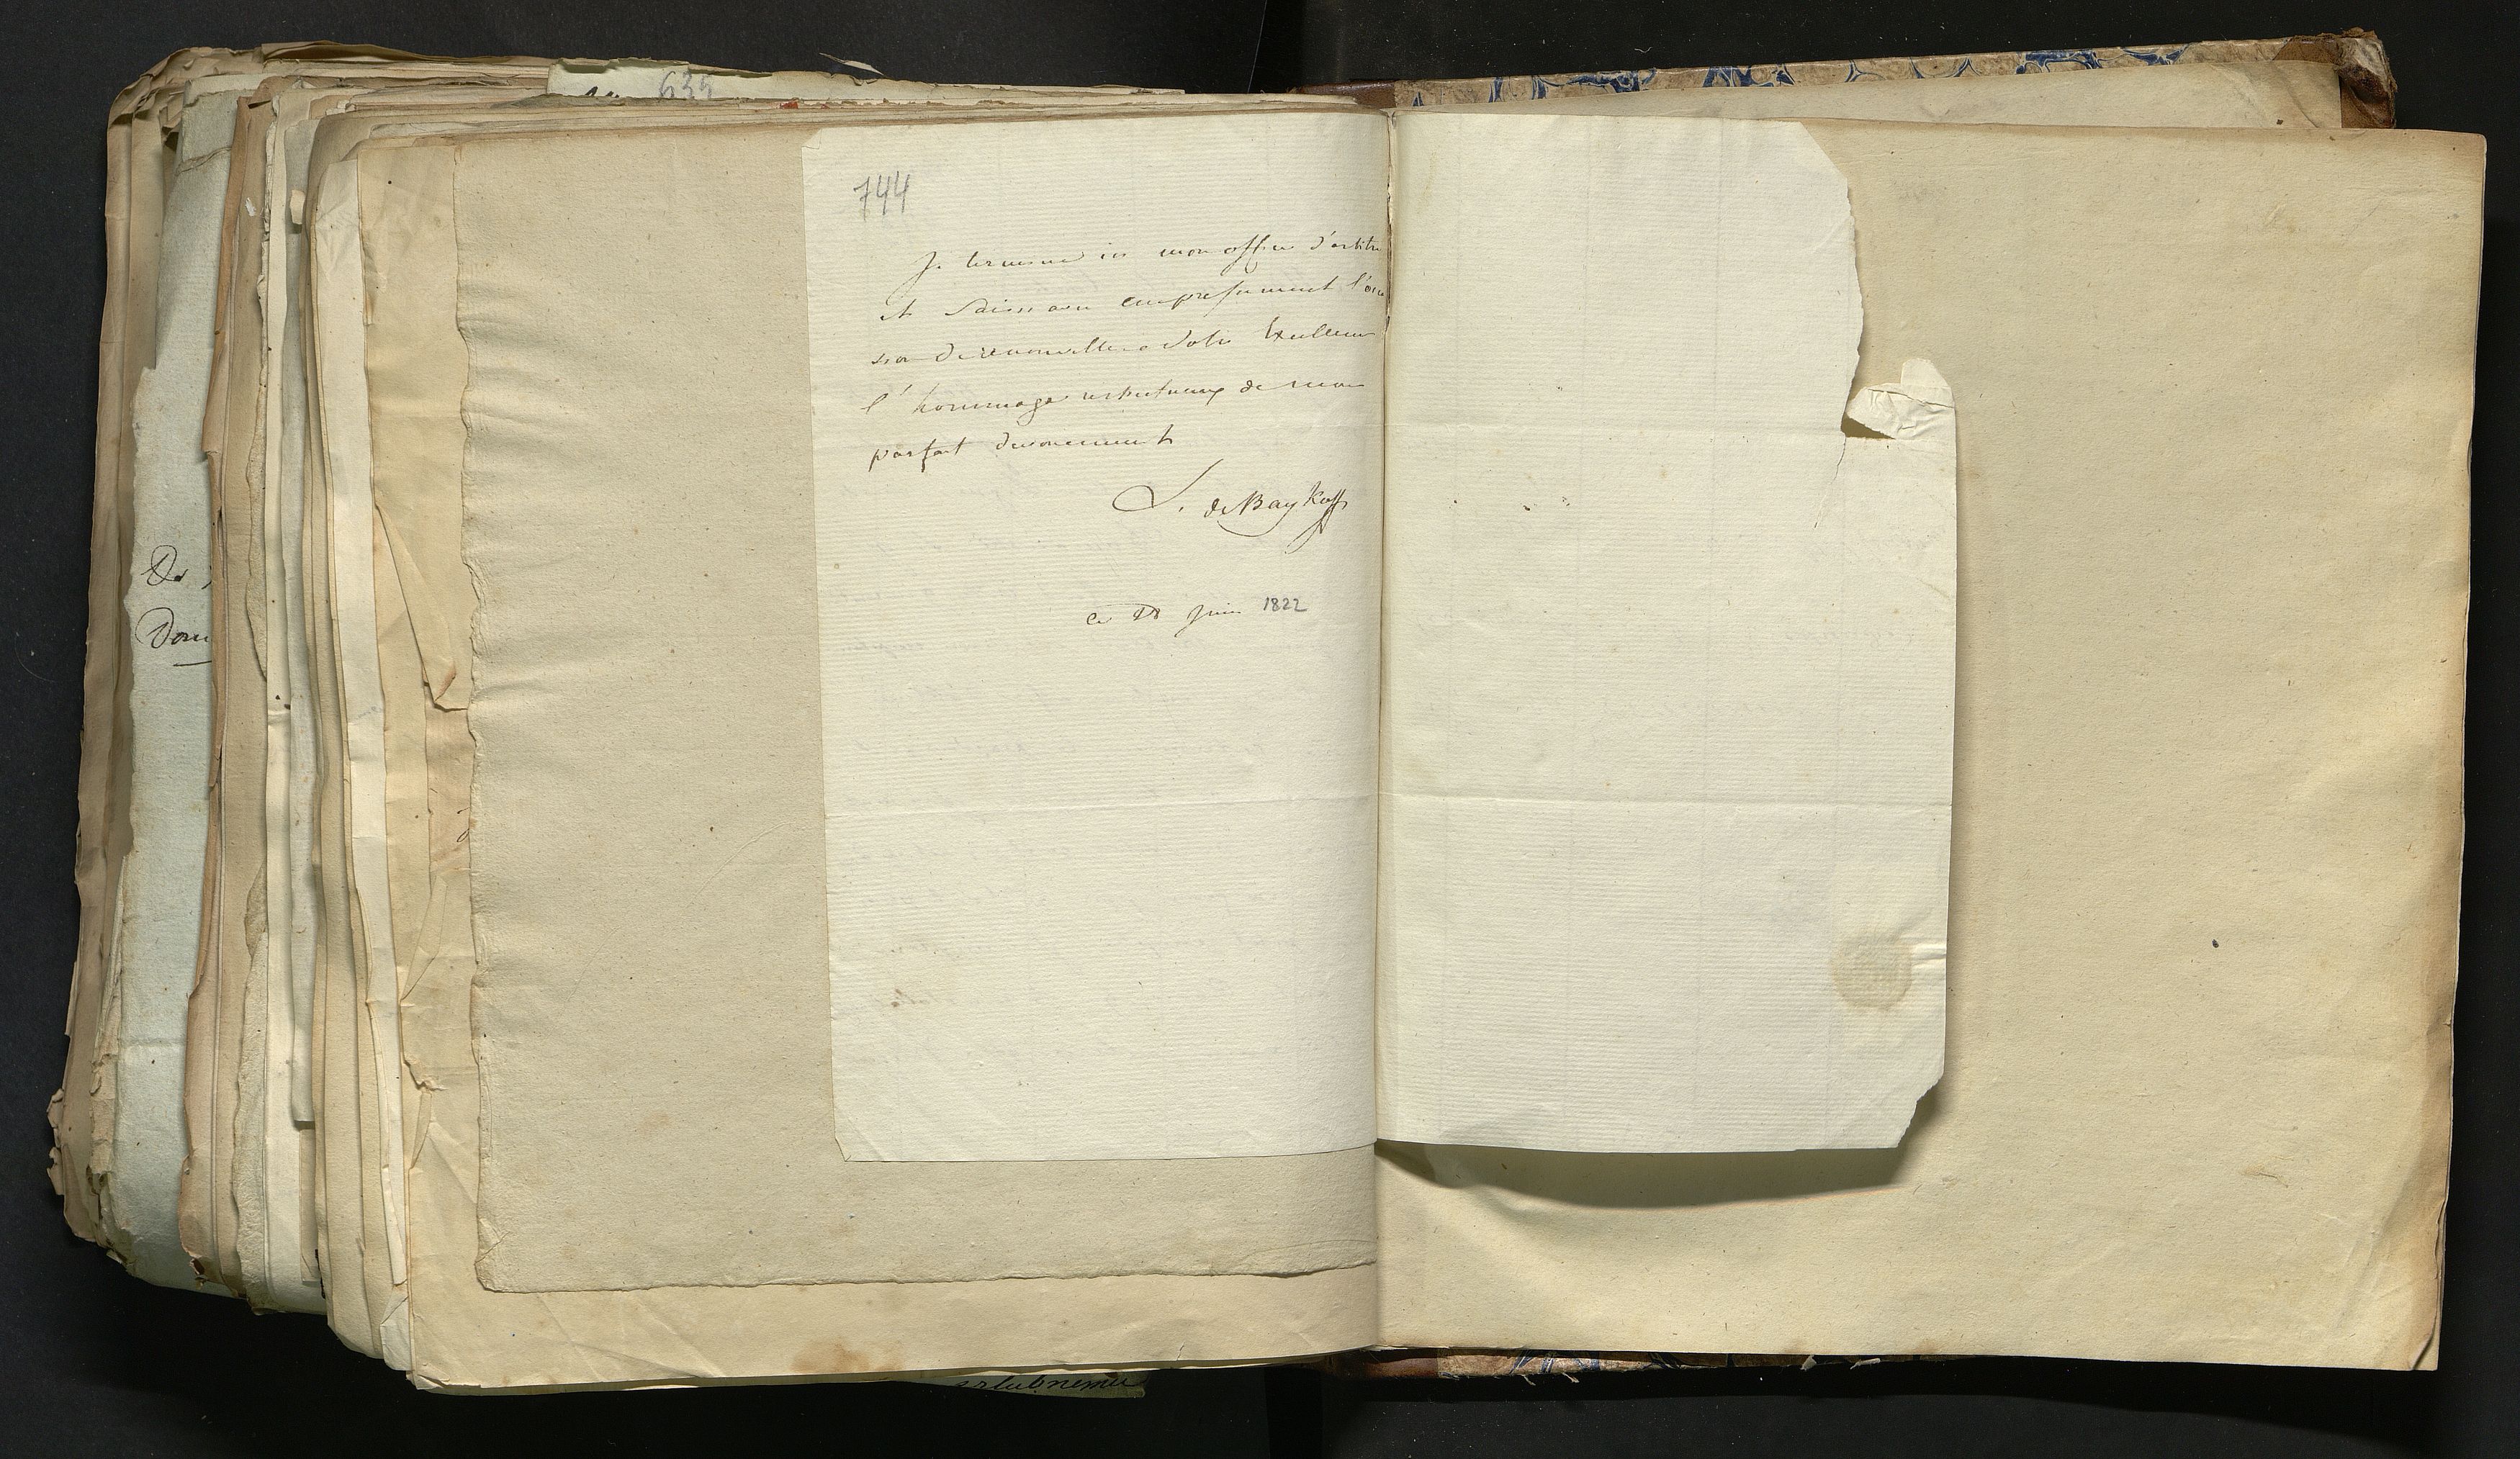 635
744
Je termine ici mon office d'arbitre
et saisis avec empressement l'occa
sion de renouveller a Votre Excellence
l'hommage respectueux de mon
parfait devouement
L. de Baykoff
ce 28 Juin 1822
De
Dom